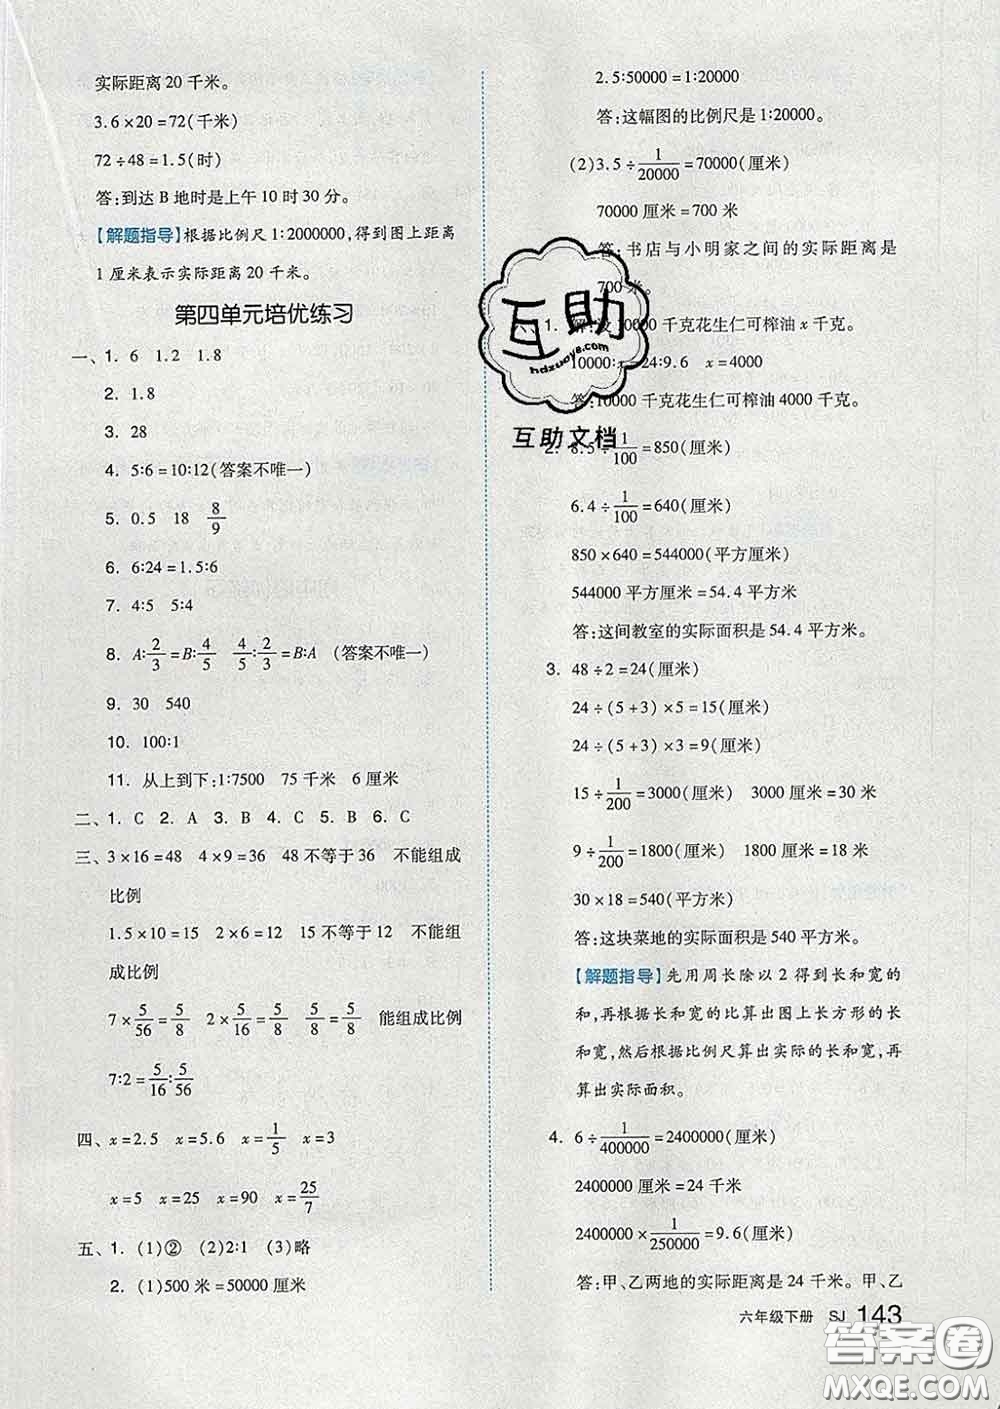 实际距离20千米。
3.6×20=72(千米)
72÷48=1.5(时)
答:到达B地时是上午10时30分。
【解题指导】根据比例尺1∶2000000,得到图上距离
1厘米表示实际距离20千米。
第四单元培优练习
一、1. 6 1.2 1.8
2. 1.8
3. 28
4. 5∶6=10∶12(答案不唯一)
5. 0.5 18 8/9
6. 6∶24=1.5∶6
7. 4∶5 5∶4
8. A∶2/3=B∶4/5 4/5∶2/3=B∶A (答案不唯一)
9. 30 540
10. 100∶1
11. 从上到下:1∶7500 75千米 6厘米
二、1. C 2. A 3. B 4. C 5. B 6. C
三、3×16=48 4×9=36 48不等于36 不能组成
比例
1.5×10=15 2×6=12 15不等于12 不能组
成比例
7×5/56=5/8 2×5/16=5/8 5/8=5/8 能组成比例
7∶2=5/16∶5/56
四、x=2.5 x=5.6 x=1/5 x=3
x=5 x=25 x=90 x=25/7
五、1. (1)② (2)2∶1 (3)略
2. (1)500米=50000厘米
2.5∶50000=1∶20000
答:这幅图的比例尺是1∶20000。
(2)3.5÷1/20000=70000(厘米)
70000厘米=700米
答:书店与小明家之间的实际距离是
700米。
1. 解:设10000千克花生仁可榨油x千克。
10000∶x=24∶9.6 x=4000
答:10000千克花生仁可榨油4000千克。
2. 8.5÷1/100=850(厘米)
6.4÷1/100=640(厘米)
850×640=544000(平方厘米)
544000平方厘米=54.4平方米
答:这间教室的实际面积是54.4平方米。
3. 48÷2=24(厘米)
24÷(5+3)×5=15(厘米)
24÷(5+3)×3=9(厘米)
15÷1/200=3000(厘米) 3000厘米=30米
9÷1/200=1800(厘米) 1800厘米=18米
30×18=540(平方米)
答:这块菜地的实际面积是540平方米。
【解题指导】先用周长除以2得到长和宽的
和,再根据长和宽的比算出图上长方形的长
和宽,然后根据比例尺算出实际的长和宽,再
算出实际面积。
4. 6÷1/400000=2400000(厘米)
2400000厘米=24千米
2400000×1/250000=9.6(厘米)
答:甲、乙两地的实际距离是24千米。甲、乙
六年级下册 SJ 143
互助
hdzuoye.com
互助文档
答案圈
MXQE.COM